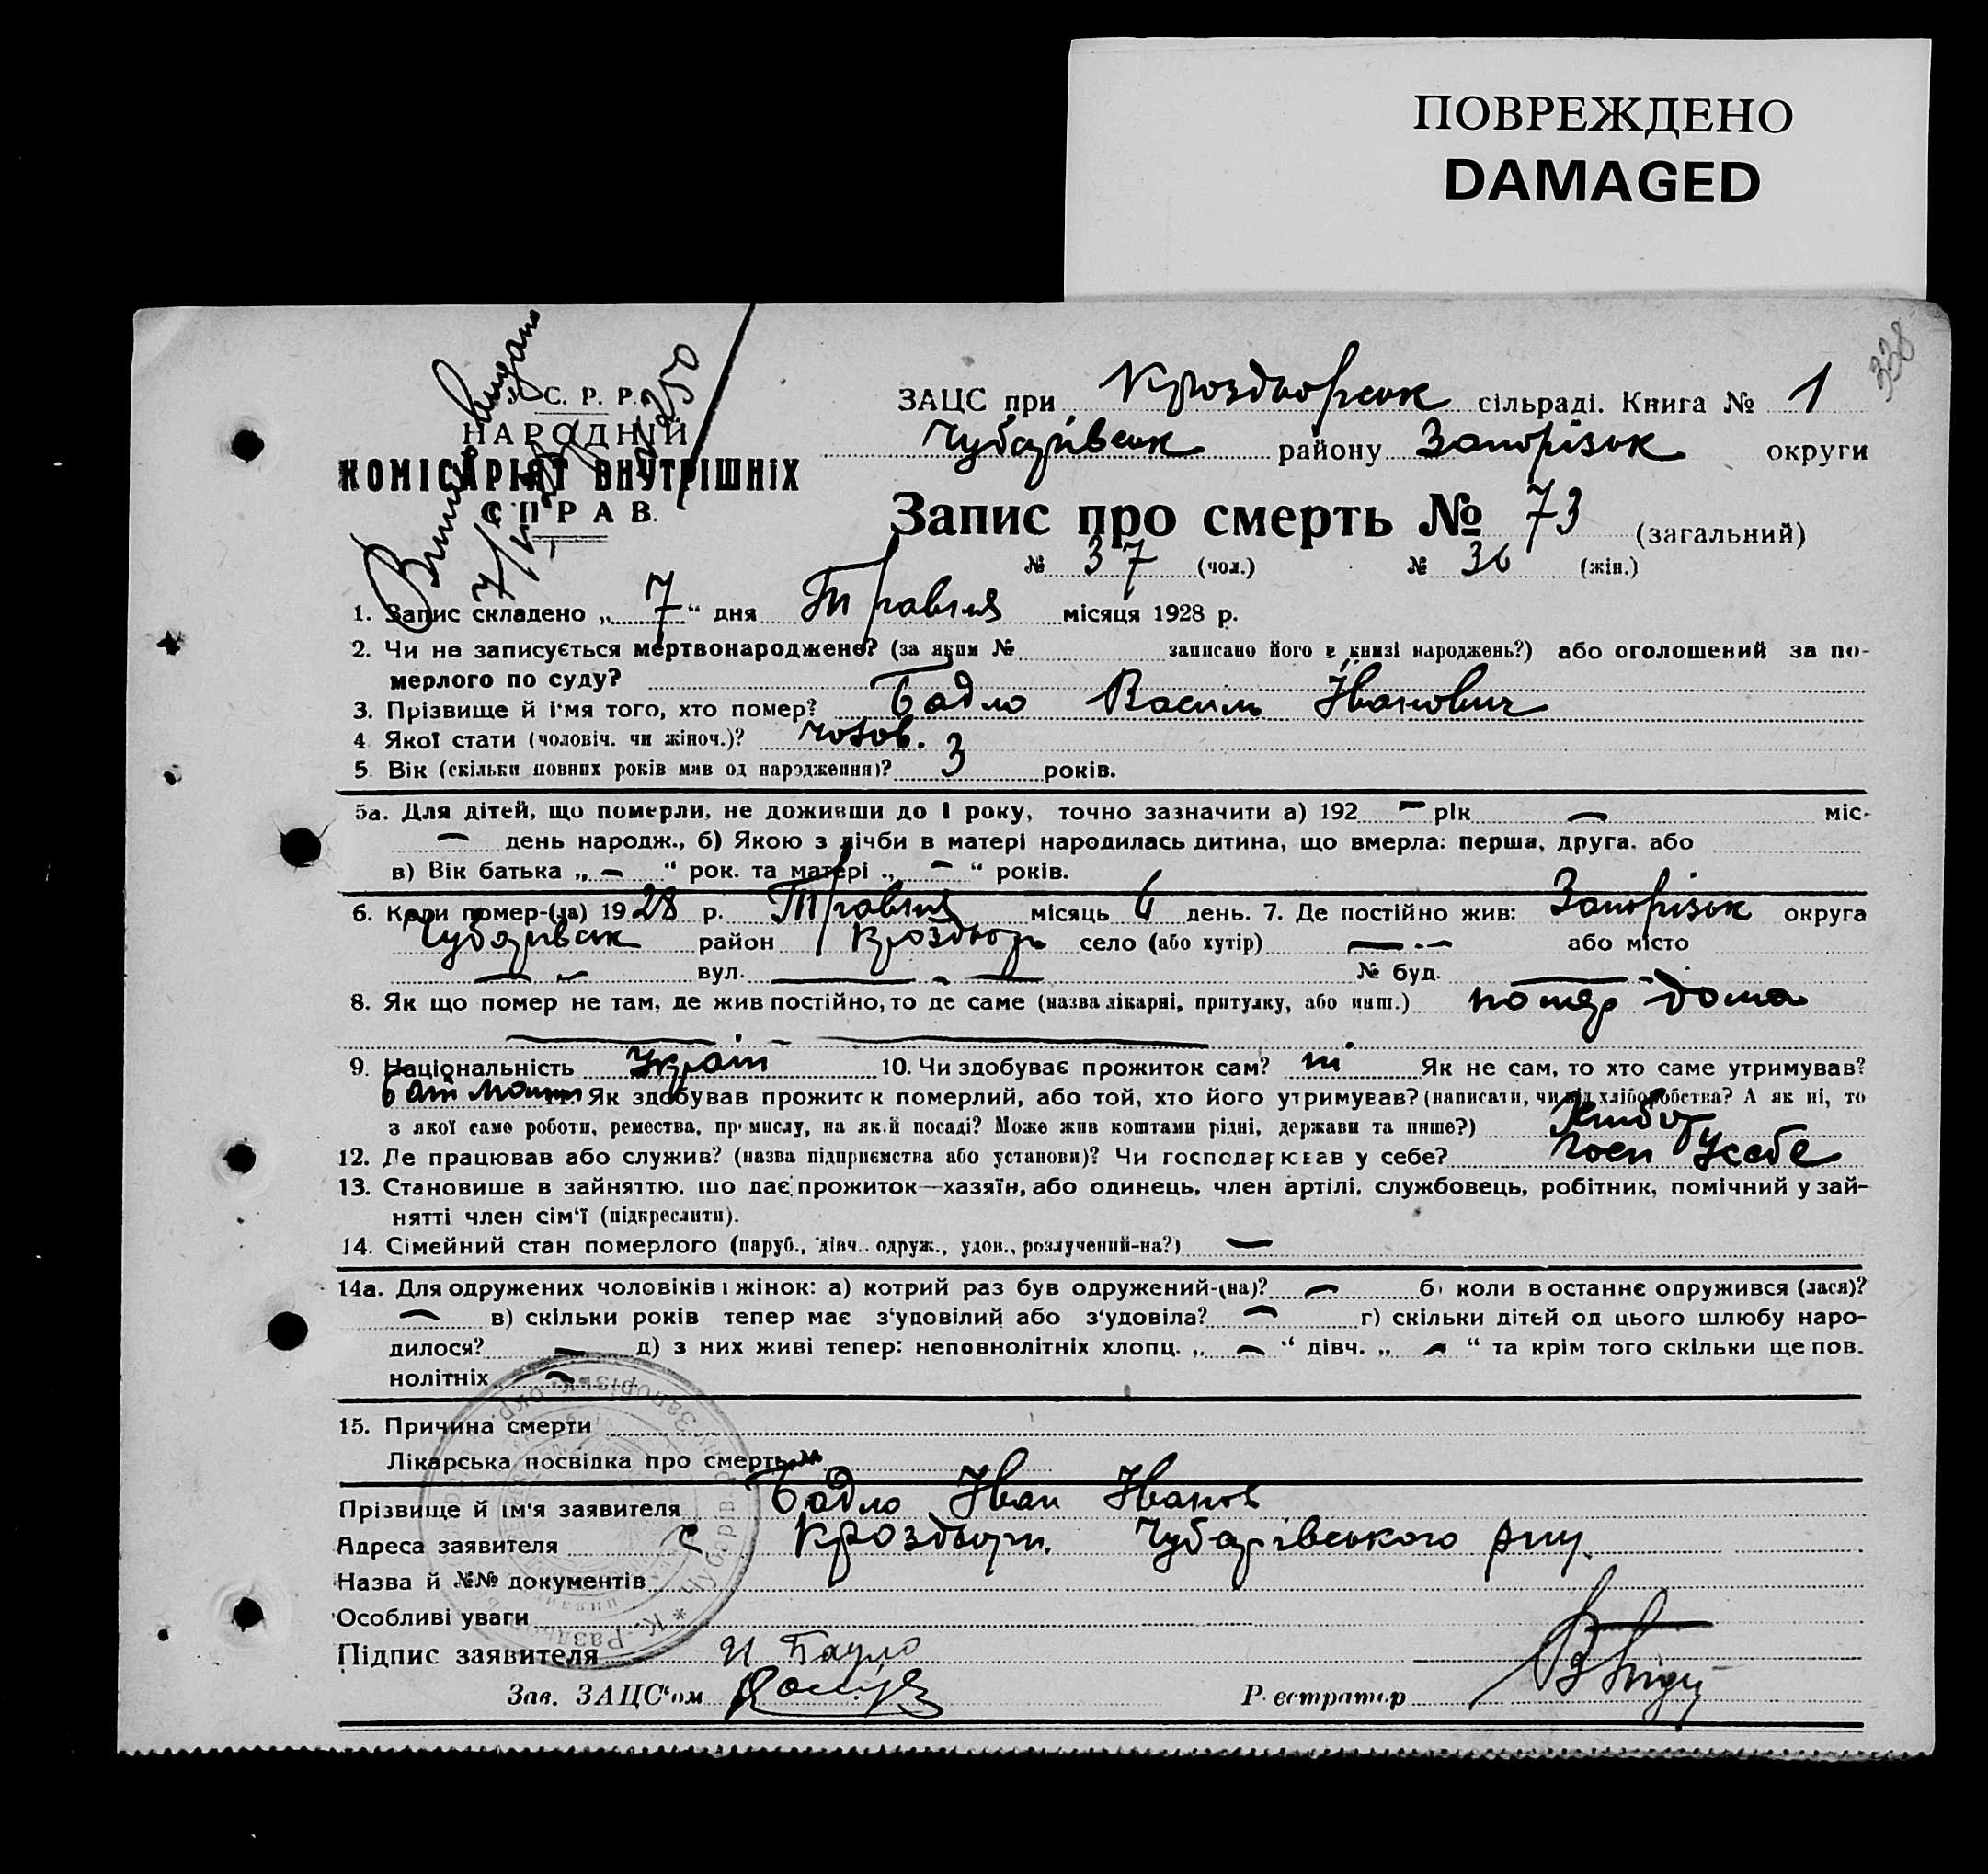 ПОВРЕЖДЕНО
DAMAGED
338
С. Р. Р.
НАРОДНІЙ
КОМІСАРІЯТ ВНУТРІШНІХ
СПРАВ.
ЗАЦС при Кроздворськ сільраді. Книга № 1
Чубарівськ району Запорізьк округи
Запис про смерть № 73 (загальний)
№ 37 (чол.) № 36 (жін.)
1. Запис складено „ 7 “ дня Травня місяця 1928 р.
2. Чи не записується мертвонароджене? (за яким № записано його в книзі народжень?) або оголошений за по-
мерлого по суду?
3. Прізвище й і'мя того, хто помер? Бадло Василь Іванович
4 Якої стати (чоловіч. чи жіноч.)? чолов.
5. Вік (скільки повних років мав од народження)? 3 років.
5а. Для дітей, що померли, не доживши до 1 року, точно зазначити а) 192 – рік – міс-
– день народж., б) Якою з лічби в матері народилась дитина, що вмерла: перша, друга, або
в) Вік батька „ – “ рок. та матері „ – “ років.
6. Коли помер-(ла) 1928 р. Травня місяць 6 день. 7. Де постійно жив: Запорізьк округа
Чубарівськ район Кроздвори село (або хутір) — або місто
— вул. — № буд. —
8. Як що помер не там, де жив постійно, то де саме (назва лікарні, притулку, або инш.) помер дома
9. Національність Україн 10. Чи здобуває прожиток сам? ні Як не сам, то хто саме утримував?
батько 11. Як здобував прожиток померлий, або той, хто його утримував? (написати, чи від хліборобства? А як ні, то
з якої саме роботи, ремества, промислу, на якій посаді? Може жив коштами рідні, держави та инше?) Хлібор
12. Де працював або служив? (назва підприємства або установи)? Чи господарював у себе? госп у себе
13. Становише в зайняттю, що дає прожиток—хазяїн, або одинець, член артілі, службовець, робітник, помічний у зай-
нятті член сім'ї (підкреслити).
14. Сімейний стан померлого (паруб., дівч., одруж., удов., розлучений-на?) —
14а. Для одружених чоловіків і жінок: а) котрий раз був одружений-(на)? — б) коли в останнє одружився (лася)?
— в) скільки років тепер має з'уповілий або з'удовіла? — г) скільки дітей од цього шлюбу наро-
дилося? — д) з них живі тепер: неповнолітніх хлопц. „ – “ дівч. „ – “ та крім того скільки ще пов.
нолітніх —
15. Причина смерти
Лікарська посвідка про смерть №
Прізвище й ім'я заявителя Бадло Іван Іванов
Адреса заявителя с Кроздвори. Чубарівського р-ну.
Назва й №№ документів
Особливі уваги
Підпис заявителя И Бадло
Зав. ЗАЦС'ом Реєстратор